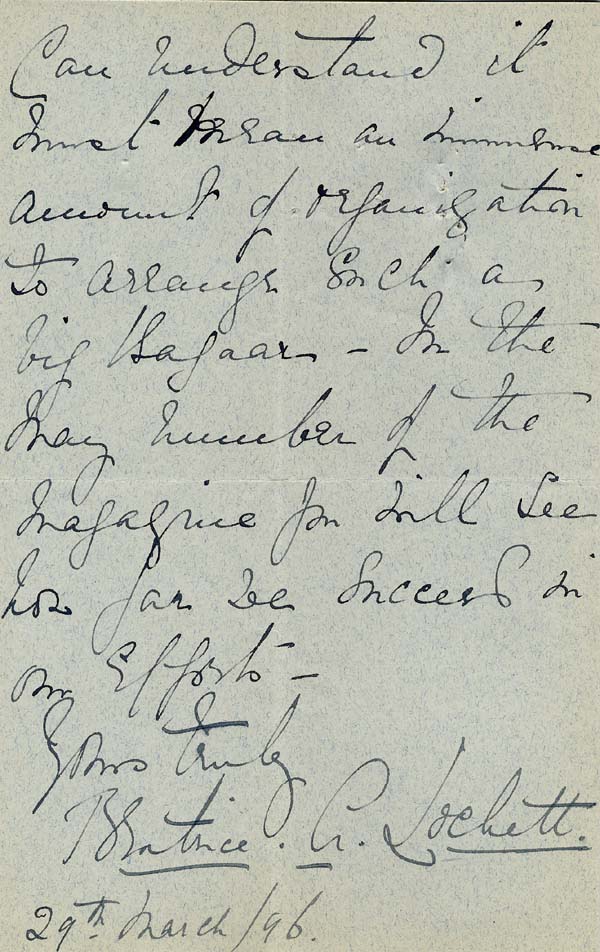 Can understand it
must mean an immense
amount of organization
to arrange such a
big Bazaar – In the
May number of the
magazine you will see
how far we succeed in
our efforts –
Yours truly
Beatrice. A. Lockett.
29th March /96.